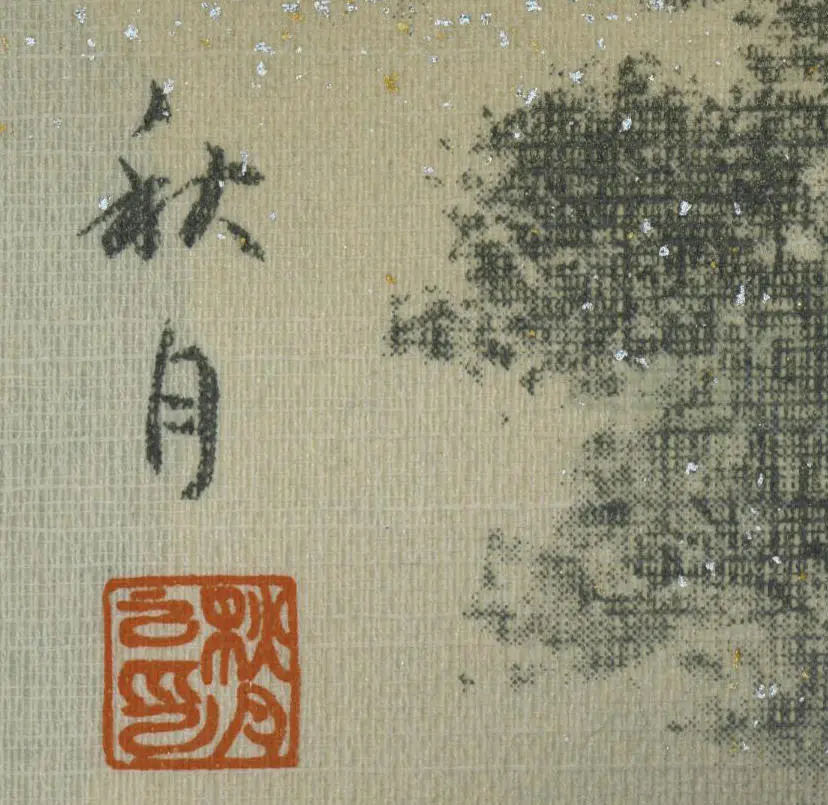 秋月
秋月
之印